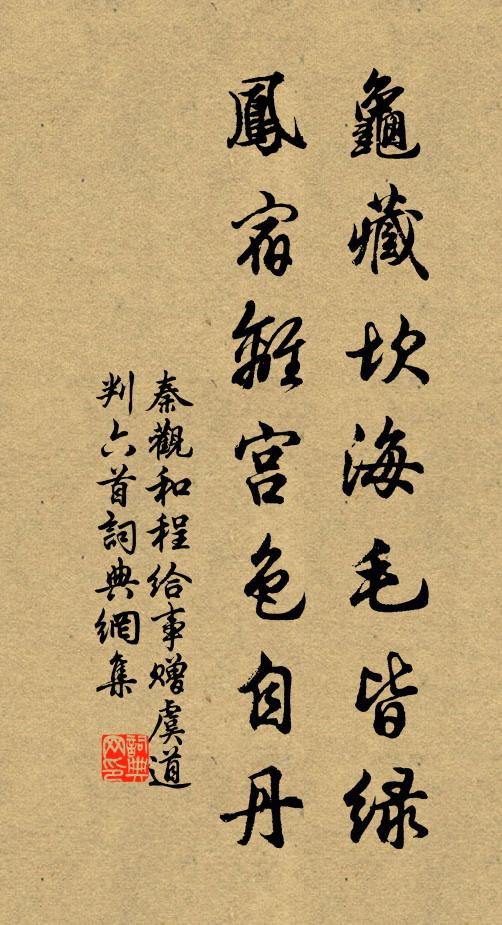 龜藏坎海毛皆緑
鳳宿離宮色自丹
秦觀和程給事贈虞道
判六首詞典網集
詞典
网印